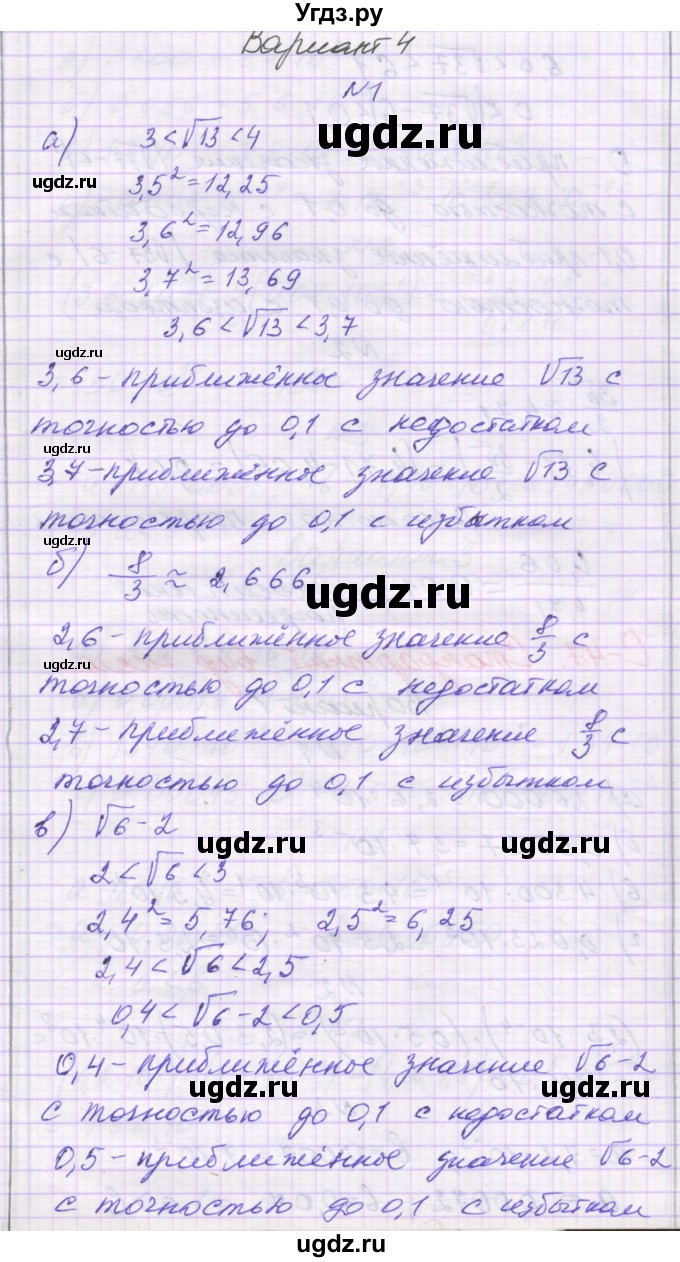 Угдз.ру
Вариант 4
№1
а) 3 < √13 < 4
ugdz.ru
ugdz.ru
3,5² = 12,25
3,6² = 12,96
3,7² = 13,69
3,6 < √13 < 3,7
ugdz.ru
3,6 - приближённое значение √13 с
точностью до 0,1 с недостатком
ugdz.ru
3,7 - приближённое значение √13 с
точностью до 0,1 с избытком
ugdz.ru
б) 8/3 ≈ 2,666
ugdz.ru
2,6 - приближённое значение 8/3 с
ugdz.ru
точностью до 0,1 с недостатком
2,7 - приближённое значение 8/3 с
ugdz.ru
точностью до 0,1 с избытком
в) √6 - 2
ugdz.ru
ugdz.ru
2 < √6 < 3
2,4² = 5,76; 2,5² = 6,25
2,4 < √6 < 2,5
0,4 < √6 - 2 < 0,5
0,4 - приближённое значение √6 - 2
ugdz.ru
ugdz.ru
с точностью до 0,1 с недостатком
0,5 - приближённое значение √6 - 2
с точностью до 0,1 с избытком
ugdz.ru
ugdz.ru